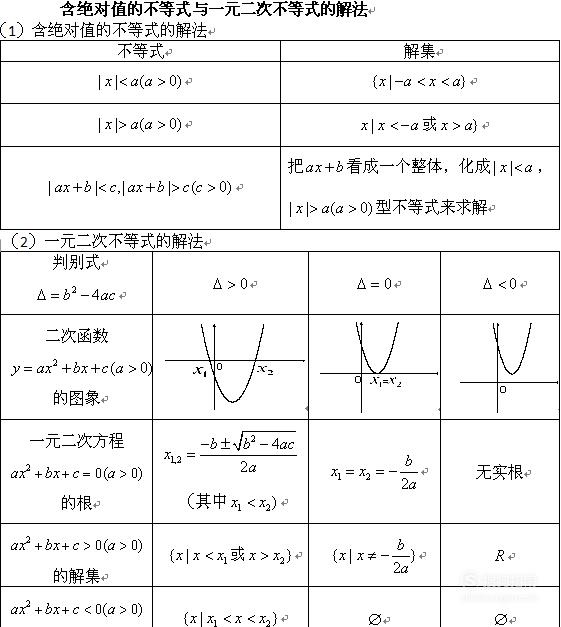 含绝对值的不等式与一元二次不等式的解法↵
(1) 含绝对值的不等式的解法↵
不等式↵ 解集↵
|x|<a(a>0)↵ {x|-a<x<a}↵
|x|>a(a>0)↵ x|x<-a或x>a}↵
|ax+b|<c,|ax+b|>c(c>0)↵ 把ax+b看成一个整体，化成|x|<a，
|x|>a(a>0)型不等式来求解↵
(2) 一元二次不等式的解法↵
判别式
Δ=b²-4ac↵ Δ>0↵ Δ=0↵ Δ<0↵
二次函数
y=ax²+bx+c(a>0)
的图象↵
x₁ 0 x₂
0 x₁=x₂
0
一元二次方程
ax²+bx+c=0(a>0)
的根↵
x₁,₂=(-b±√(b²-4ac))/2a
(其中x₁<x₂)↵
x₁=x₂=-b/2a↵
无实根↵
ax²+bx+c>0(a>0)
的解集↵
{x|x<x₁或x>x₂}↵ {x|x≠-b/2a}↵ R↵
ax²+bx+c<0(a>0)
{x|x₁<x<x₂}↵ ∅↵ ∅↵